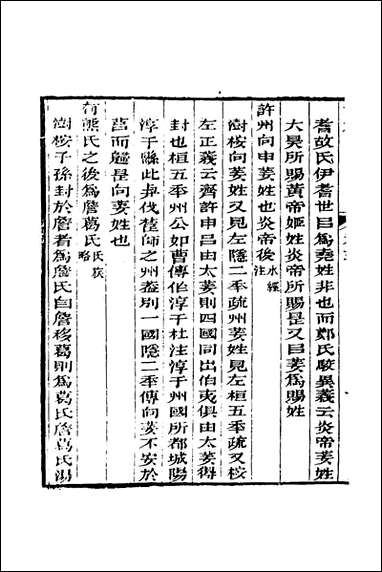 耆故氏伊耆世曰爲堯姓非也而鄭氏駮異義云炎帝姜姓
大昊所賜黃帝姬姓炎帝所賜是又曰姜爲賜姓
許州向申姜姓也炎帝後水經注
澍桉向姜姓又見左隱二年疏州姜姓見左桓五年疏又桉
左正義云齊許申呂由太姜則四國同出伯夷俱由太姜得
封也桓五年州公如曹傳作淳于杜注淳于州國所都城陽
淳于縣此與伐
師之州
別一國隱二年傳向姜不安於
莒而歸是向姜姓也
有熊氏之後爲詹葛氏氏族略
澍桉子孫封於詹者爲詹氏自詹移葛則爲葛氏詹葛氏湯